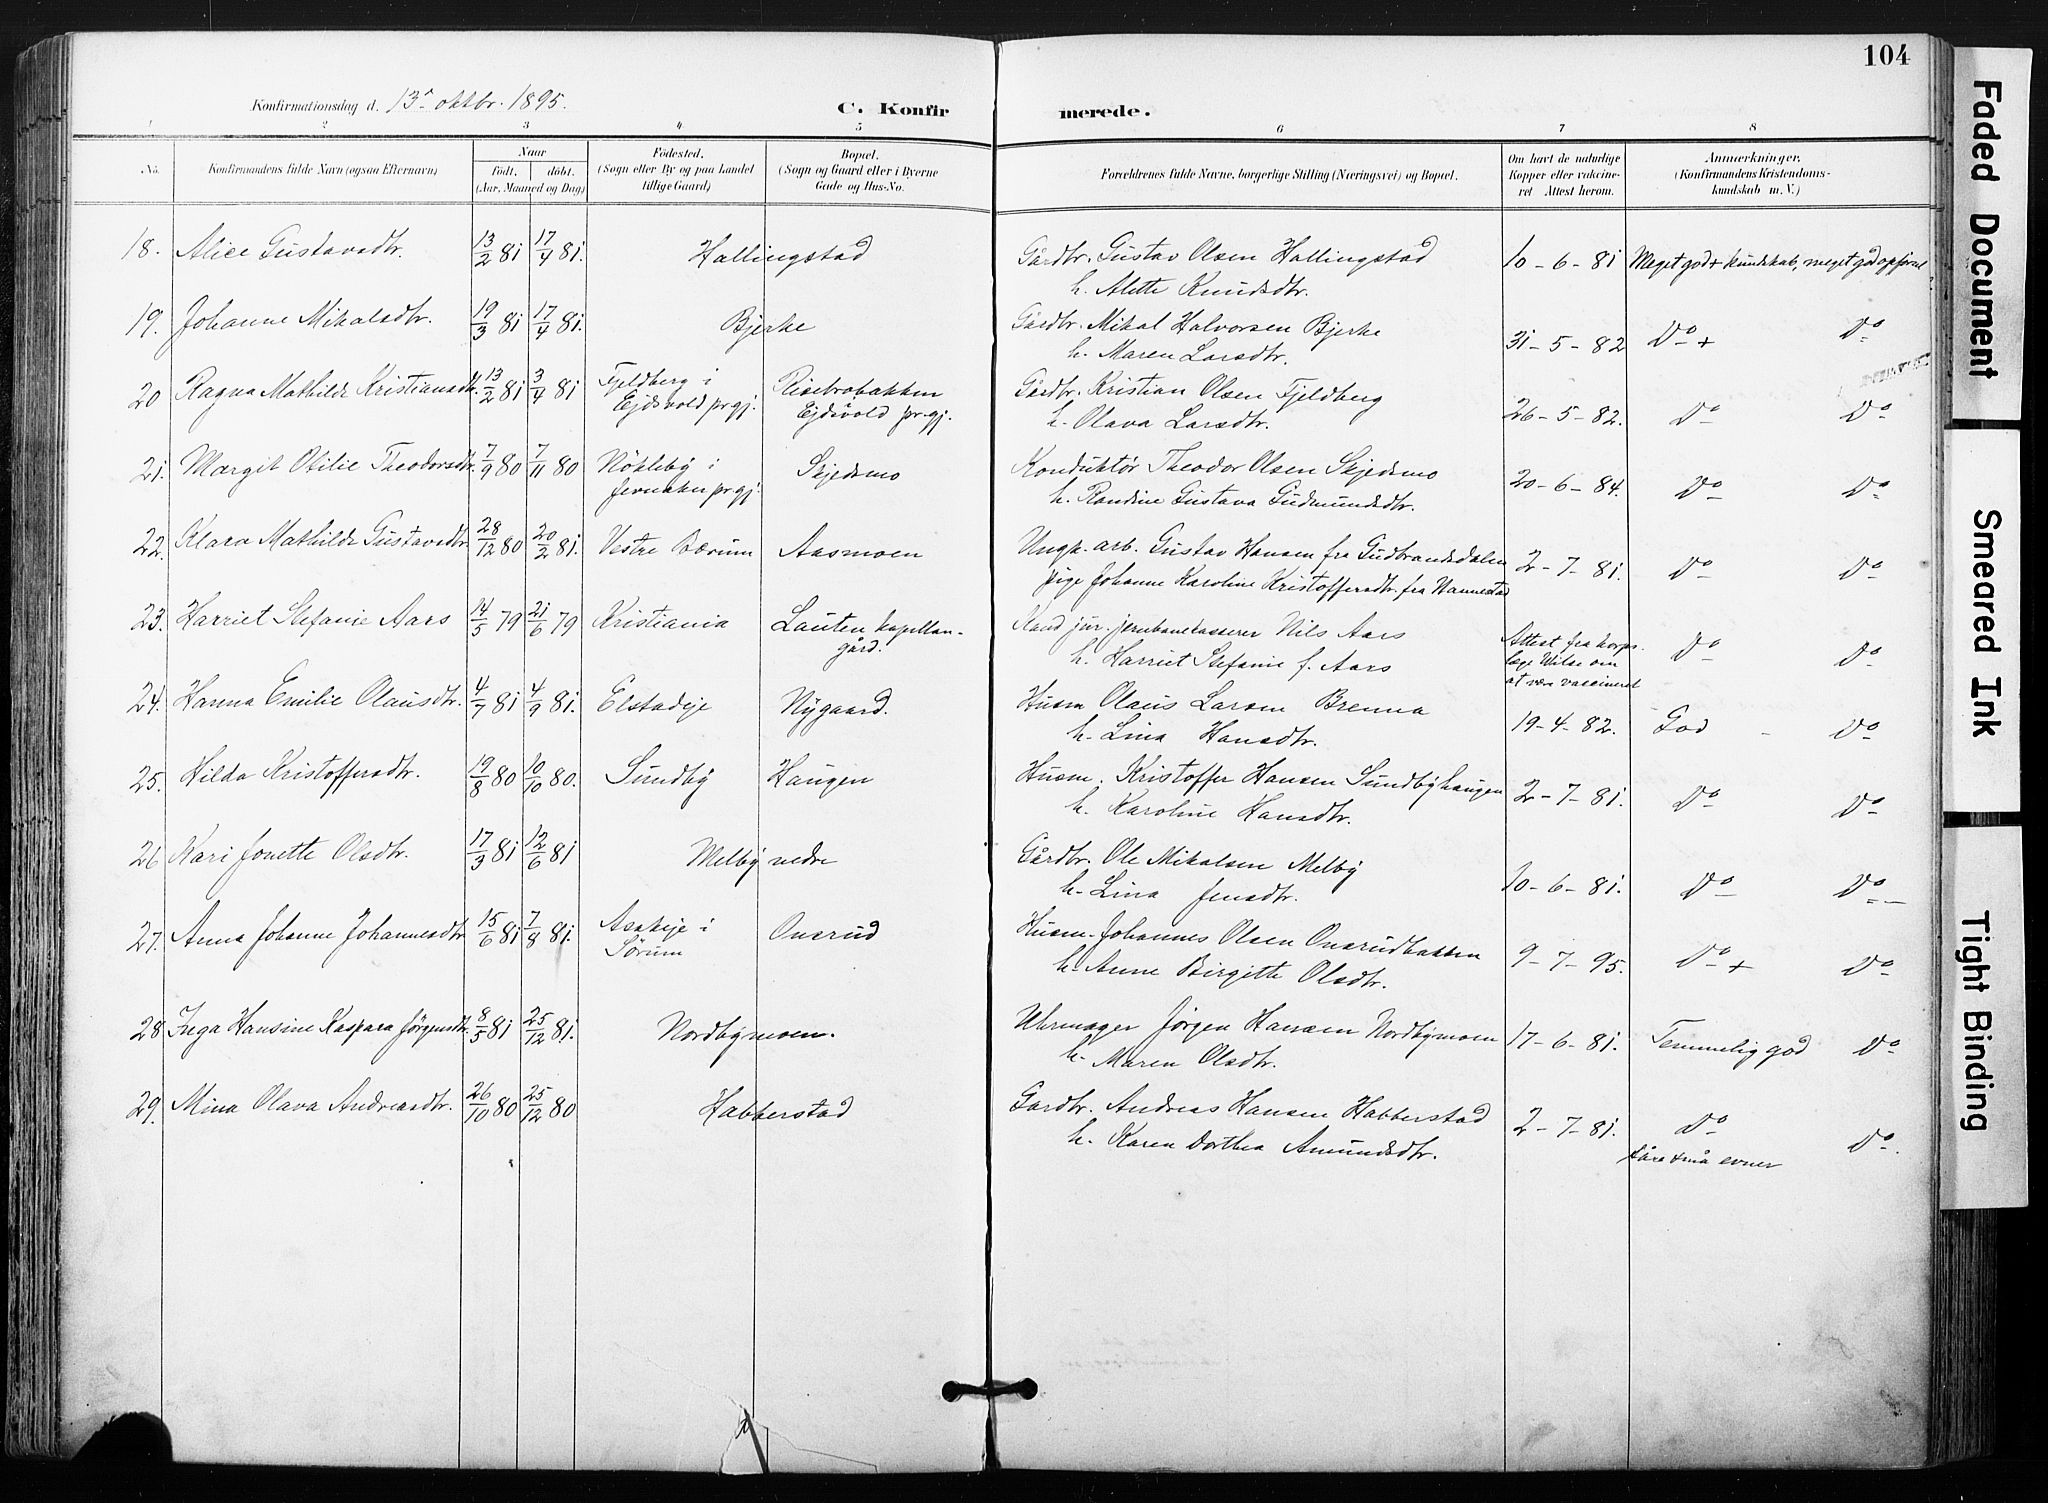 104
Konfirmationsdag d. 13de oktbr. 1895.
C. Konfir merede.
1 2 3 4 5 6 7 8
No.
Konfirmandens fulde Navn (ogsaa Efternavn)
Naar
født. døbt.
(Aar, Maaned og Dag)
Fødested.
(Sogn eller By og paa Landet
tillige Gaard)
Bopæl.
(Sogn og Gaard eller i Byerne
Gade og Hus-No.
Forældrenes fulde Navne, borgerlige Stilling (Næringsvei) og Bopæl.
Om havt de naturlige
Kopper eller vakcine-
ret Attest herom.
Anmærkninger.
(Konfirmandens Kristendoms-
kundskab m. V.)
18. Alice Gustavsdtr. 13/2 81 17/4 81. Hallingstad Gårdbr. Gustav Olsen Hallingstad 10-6-81 Meget god + kundskab, meget god opførsel
h. Alette Knudsdtr.
19. Johanne Mikalsdtr. 19/3 81 17/4 81. Bjerke Gårdbr. Mikal Halvorsen Bjerke 31-5-82 Do + Do
h. Maren Larsdtr.
20 Ragna Mathilde Kristiansdtr. 13/2 81 3/4 81 Fjeldberg i Risebrobakken Gårdbr. Kristian Olsen Fjeldberg
Ejdsvold prgj. Ejdsvold prgj. h. Olava Larsdtr. 26-5-82. Do Do
21. Margit Otilie Theodorsdtr. 7/9 80 7/11 80 Nökleby i Skjedsmo Konduktør Theodor Olsen Skjedsmo 20-6-84. Do Do
Jevnaker prgj. h. Randine Gustava Gudmundsdtr.
22. Klara Mathilde Gustavsdtr. 28/12 80 20/2 81. Vestre Bærum Aasmoen Ungk. arb. Gustav Hansen fra Gudbrandsdalen 2-7-81. Do Do
pige Johanne Karoline Kristoffersdtr. fra Nannestad
23. Harriet Stefanie Aars 14/5 79 21/6 79 Kristiania Lauten kapellan- Kand jur. jernbanekasserer Nils Aars Attest fra korps- Do Do
gård. h. Harriet Stefanie f. Aars læge Wilse om
at være vaccineret
24. Hanna Emilie Olausdtr. 4/7 81 4/9 81. Elstadeje Nygaard. Husm Olaus Larsen Brenna 19-4-82. God Do
h. Lina Hansdtr.
25. Hilda Kristoffersdtr. 19/8 80 10/10 80. Sundby Haugen Husm. Kristoffer Hansen Sundbyhaugen 2-7-81. Do Do
h. Karoline Hansdtr.
26 Kari Jonette Olsdtr. 17/3 81 12/6 81 Melby nedre Gårdbr. Ole Mikalsen Melby 10-6-81. Do Do
h. Lina Jensdtr.
27. Anna Johanne Johannesdtr 15/6 81 7/8 81. Asakeje i Onsrud Husm. Johannes Olsen Onsrudbakken 9-7-95. Do + Do
Sørum h. Anne Birgitte Olsdtr.
28. Inga Hansine Kaspara Jørgensdtr. 8/5 81 25/12 81. Nordbymoen. Uhrmager Jørgen Hansen Nordbymoen 17-6-81. Temmelig god Do
h. Maren Olsdtr.
29. Mina Olava Andreasdtr. 26/10 80 25/12 80 Habberstad Gardbr. Andreas Hansen Habberstad 2-7-81. Do Do
h. Karen Dorthea Amundsdtr. små evner
Faded Document
Smeared Ink
Tight Binding